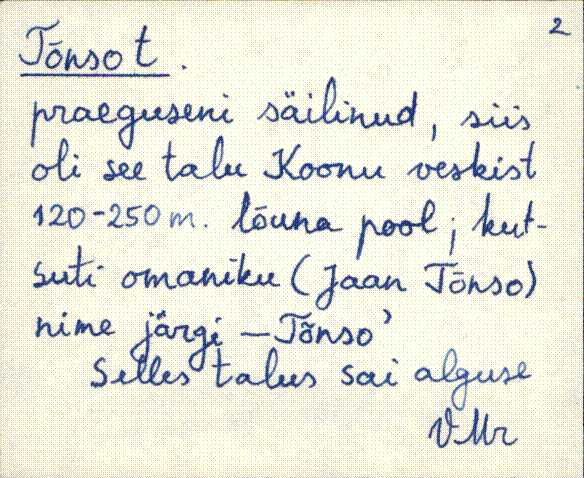 2
Tõnso t.
praeguseni säilinud, siis
oli see talu Koonu veskist
120-250m. lõuna pool; kut-
suti omaniku (Jaan Tõnso)
nime järgi – Tõnso'
Selles talus sai alguse
VMr